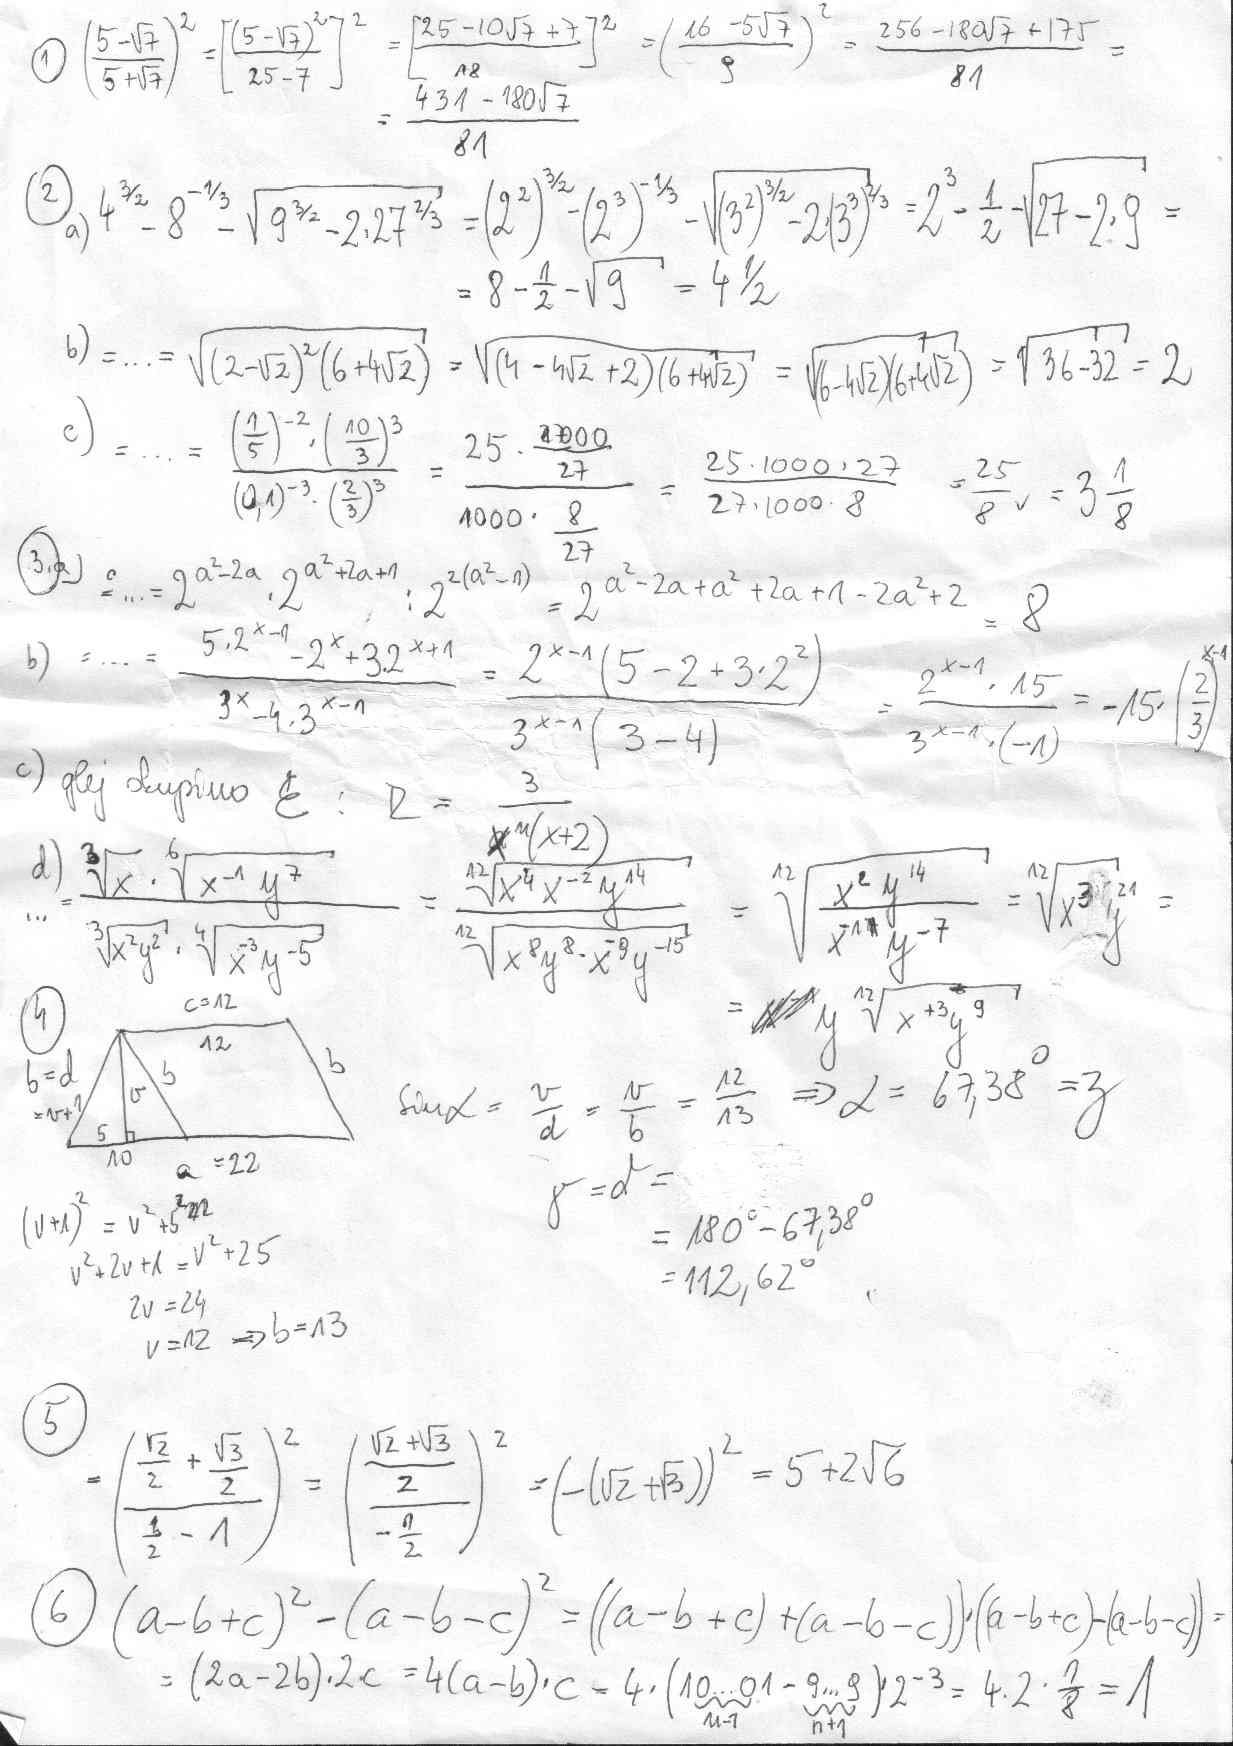 1 ((5-√7)/(5+√7))² = [(5-√7)²/(25-7)]² = [(25-10√7+7)/18]² = ((16-5√7)/9)² = (256-180√7+175)/81 =
= (431-180√7)/81
2 a) 4^(3/2) - 8^(-1/3) - √(9^(3/2) - 2·27^(2/3)) = (2²)^(3/2) - (2³)^(-1/3) - √((3²)^(3/2) - 2·(3³)^(2/3)) = 2³ - 1/2 - √(27-2·9) =
= 8 - 1/2 - √9 = 4 1/2
b) = ... = √((2-√2)²(6+4√2)) = √((4-4√2+2)(6+4√2)) = √((6-4√2)(6+4√2)) = √(36-32) = 2
c) = ... = ((1/5)^(-2) · (10/3)³)/((0,1)^(-3) · (2/3)³) = (25 · 1000/27)/(1000 · 8/27) = (25·1000·27)/(27·1000·8) = 25/8 = 3 1/8
3. a) = ... = 2^(a²-2a) · 2^(a²+2a+1) : 2^(2(a²-1)) = 2^(a²-2a+a²+2a+1-2a²+2) = 8
b) = ... = (5·2^(x-1) - 2^x + 3·2^(x+1))/(3^x - 4·3^(x-1)) = (2^(x-1)(5-2+3·2²))/(3^(x-1)(3-4)) = (2^(x-1)·15)/(3^(x-1)·(-1)) = -15·(2/3)^(x-1)
c) glej skupino E : R = 3/(x^n(x+2))
d) ... = (³√x · ⁶√(x^(-1)y^7))/(³√(x²y²) · ⁴√(x^(-3)y^(-5))) = ¹²√(x⁴x^(-2)y^14)/¹²√(x⁸y⁸·x^(-9)y^(-15)) = ¹²√((x²y^14)/(x^(-1)y^(-7))) = ¹²√(x³y^21) =
= y ¹²√(x^(+3)y⁹)
4 c=12
12
b=d
=v+1
v b b
5
10 a=22
sinα = v/d = v/b = 12/13 ⇒ α = 67,38° = β
γ = δ =
= 180° - 67,38°
= 112,62°
(v+1)² = v²+5²
v²+2v+1 = v²+25
2v=24
v=12 ⇒ b=13
5
= ((√2/2 + √3/2)/(1/2 - 1))² = (((√2+√3)/2)/(-1/2))² = (-(√2+√3))² = 5+2√6
6 (a-b+c)² - (a-b-c)² = ((a-b+c)+(a-b-c))·((a-b+c)-(a-b-c)) =
= (2a-2b)·2c = 4(a-b)·c = 4·(10...01 - 9...9)·2^(-3) = 4·2·1/8 = 1
n-1 n+1